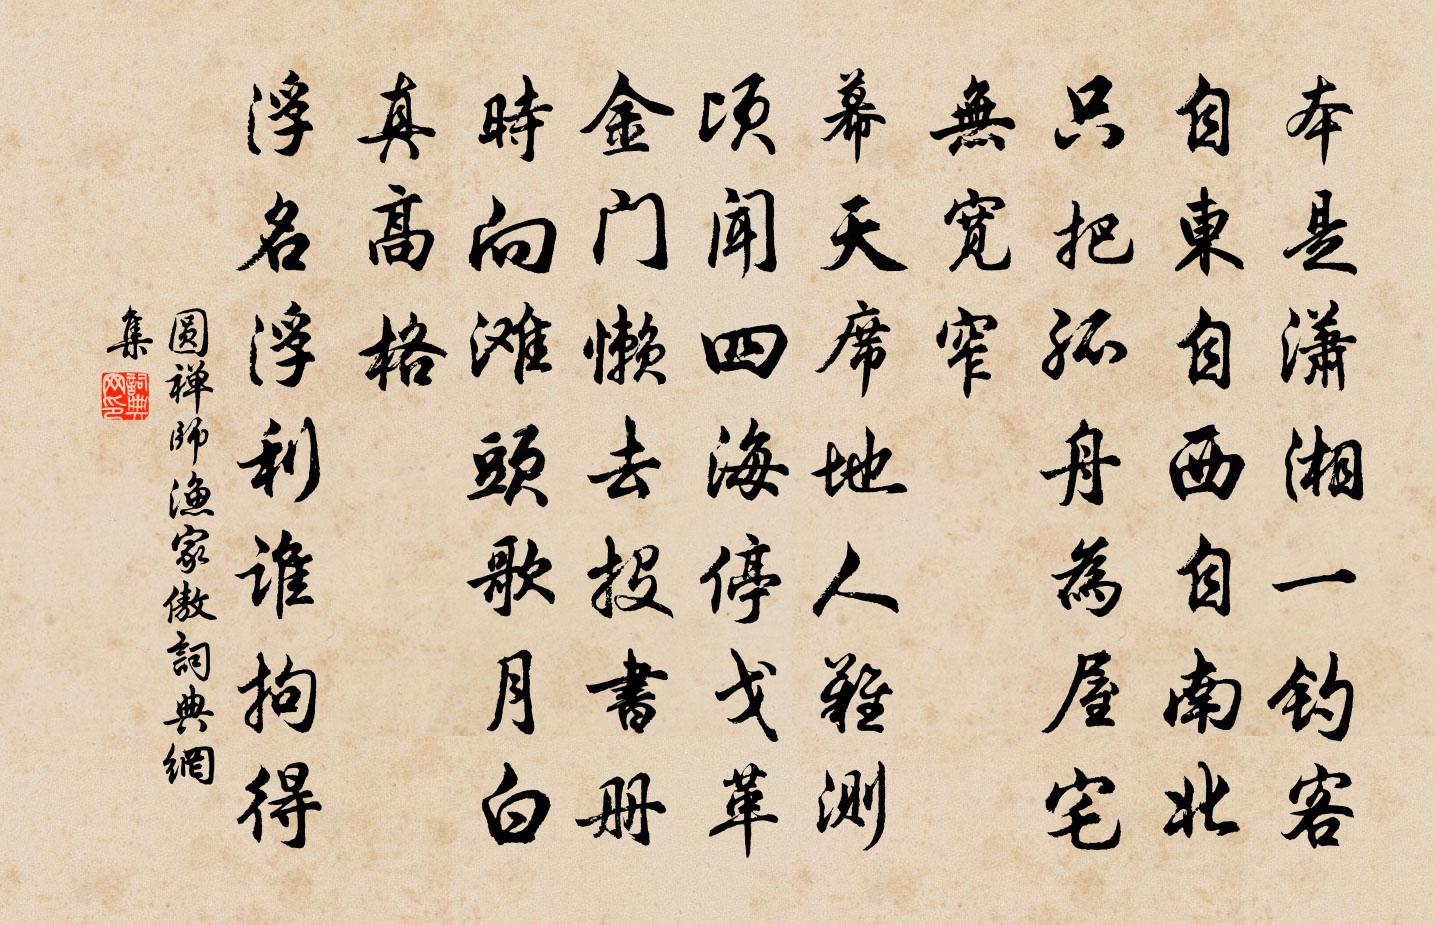 本是瀟湘一釣客
自東自西自南北
只把孤舟為屋宅
無寬窄
幕天席地人難測
頃聞四海停戈革
金门懶去投書册
時向滩頭歌月白
真高格
浮名浮利谁拘得
圆禅師渔家傲詞典網
集
詞典
网印